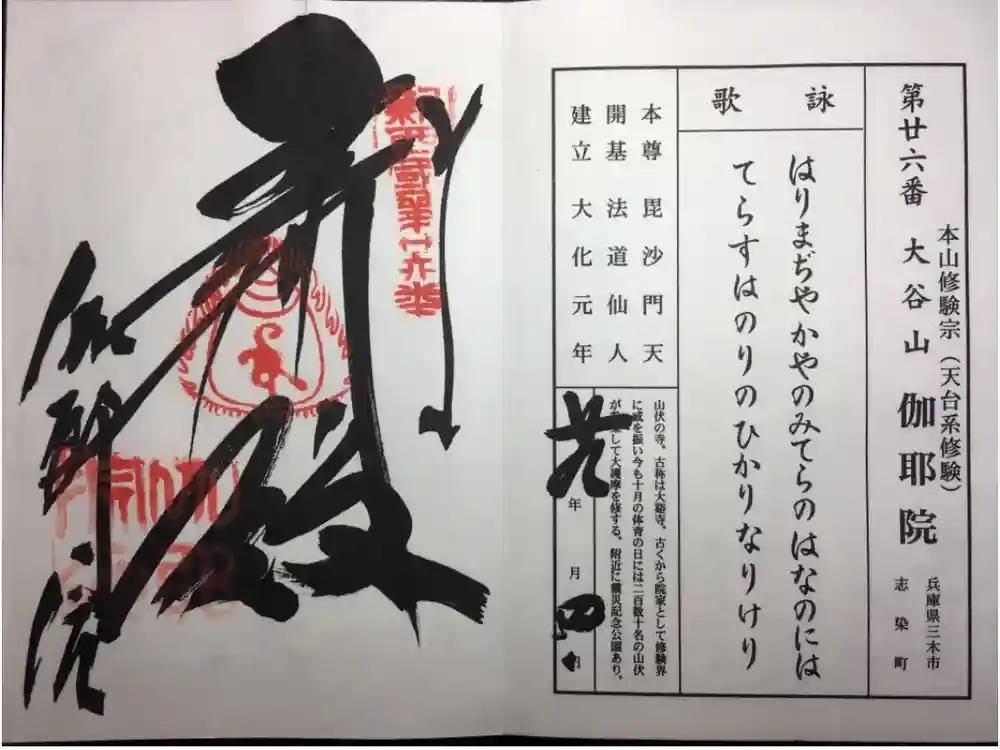 本山修験宗(天台系修験)
第廿六番 大谷山 伽耶院
兵庫県三木市
志染町
詠歌
はりまぢやかやのみてらのはなのには
てらすはのりのひかりなりけり
本尊毘沙門天
開基法道仙人
建立大化元年
山伏の寺。古称は大谿寺。古くから院家として修験界
に威を振い今も十月の体育の日には二百数十名の山伏
して大護摩を修する。附近に震災記念公園あり。
年 月 四 日
伽耶院